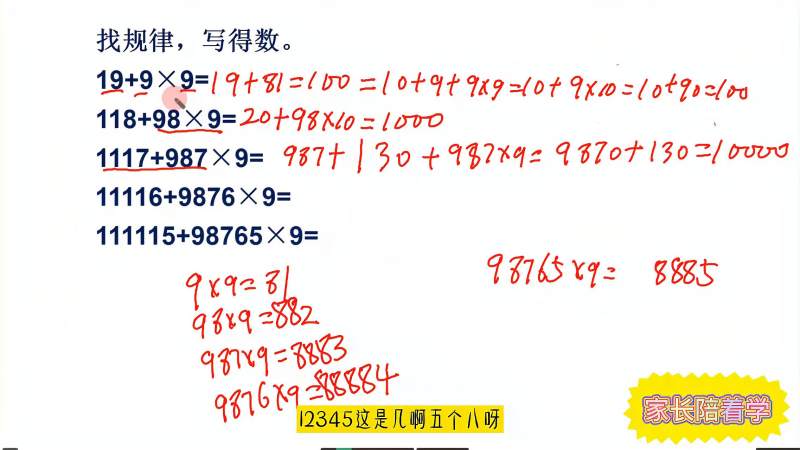 找规律，写得数。
19+9×9=19+81=100=10+9+9×9=10+9×10=10+90=100
118+98×9=20+98×10=1000
1117+987×9= 987+130+987×9=9870+130=10000
11116+9876×9=
111115+98765×9=
98765×9= 8885
9×9=81
98×9=882
987×9=8883
9876×9=88884
12345这是几啊五个八呀
家长陪着学